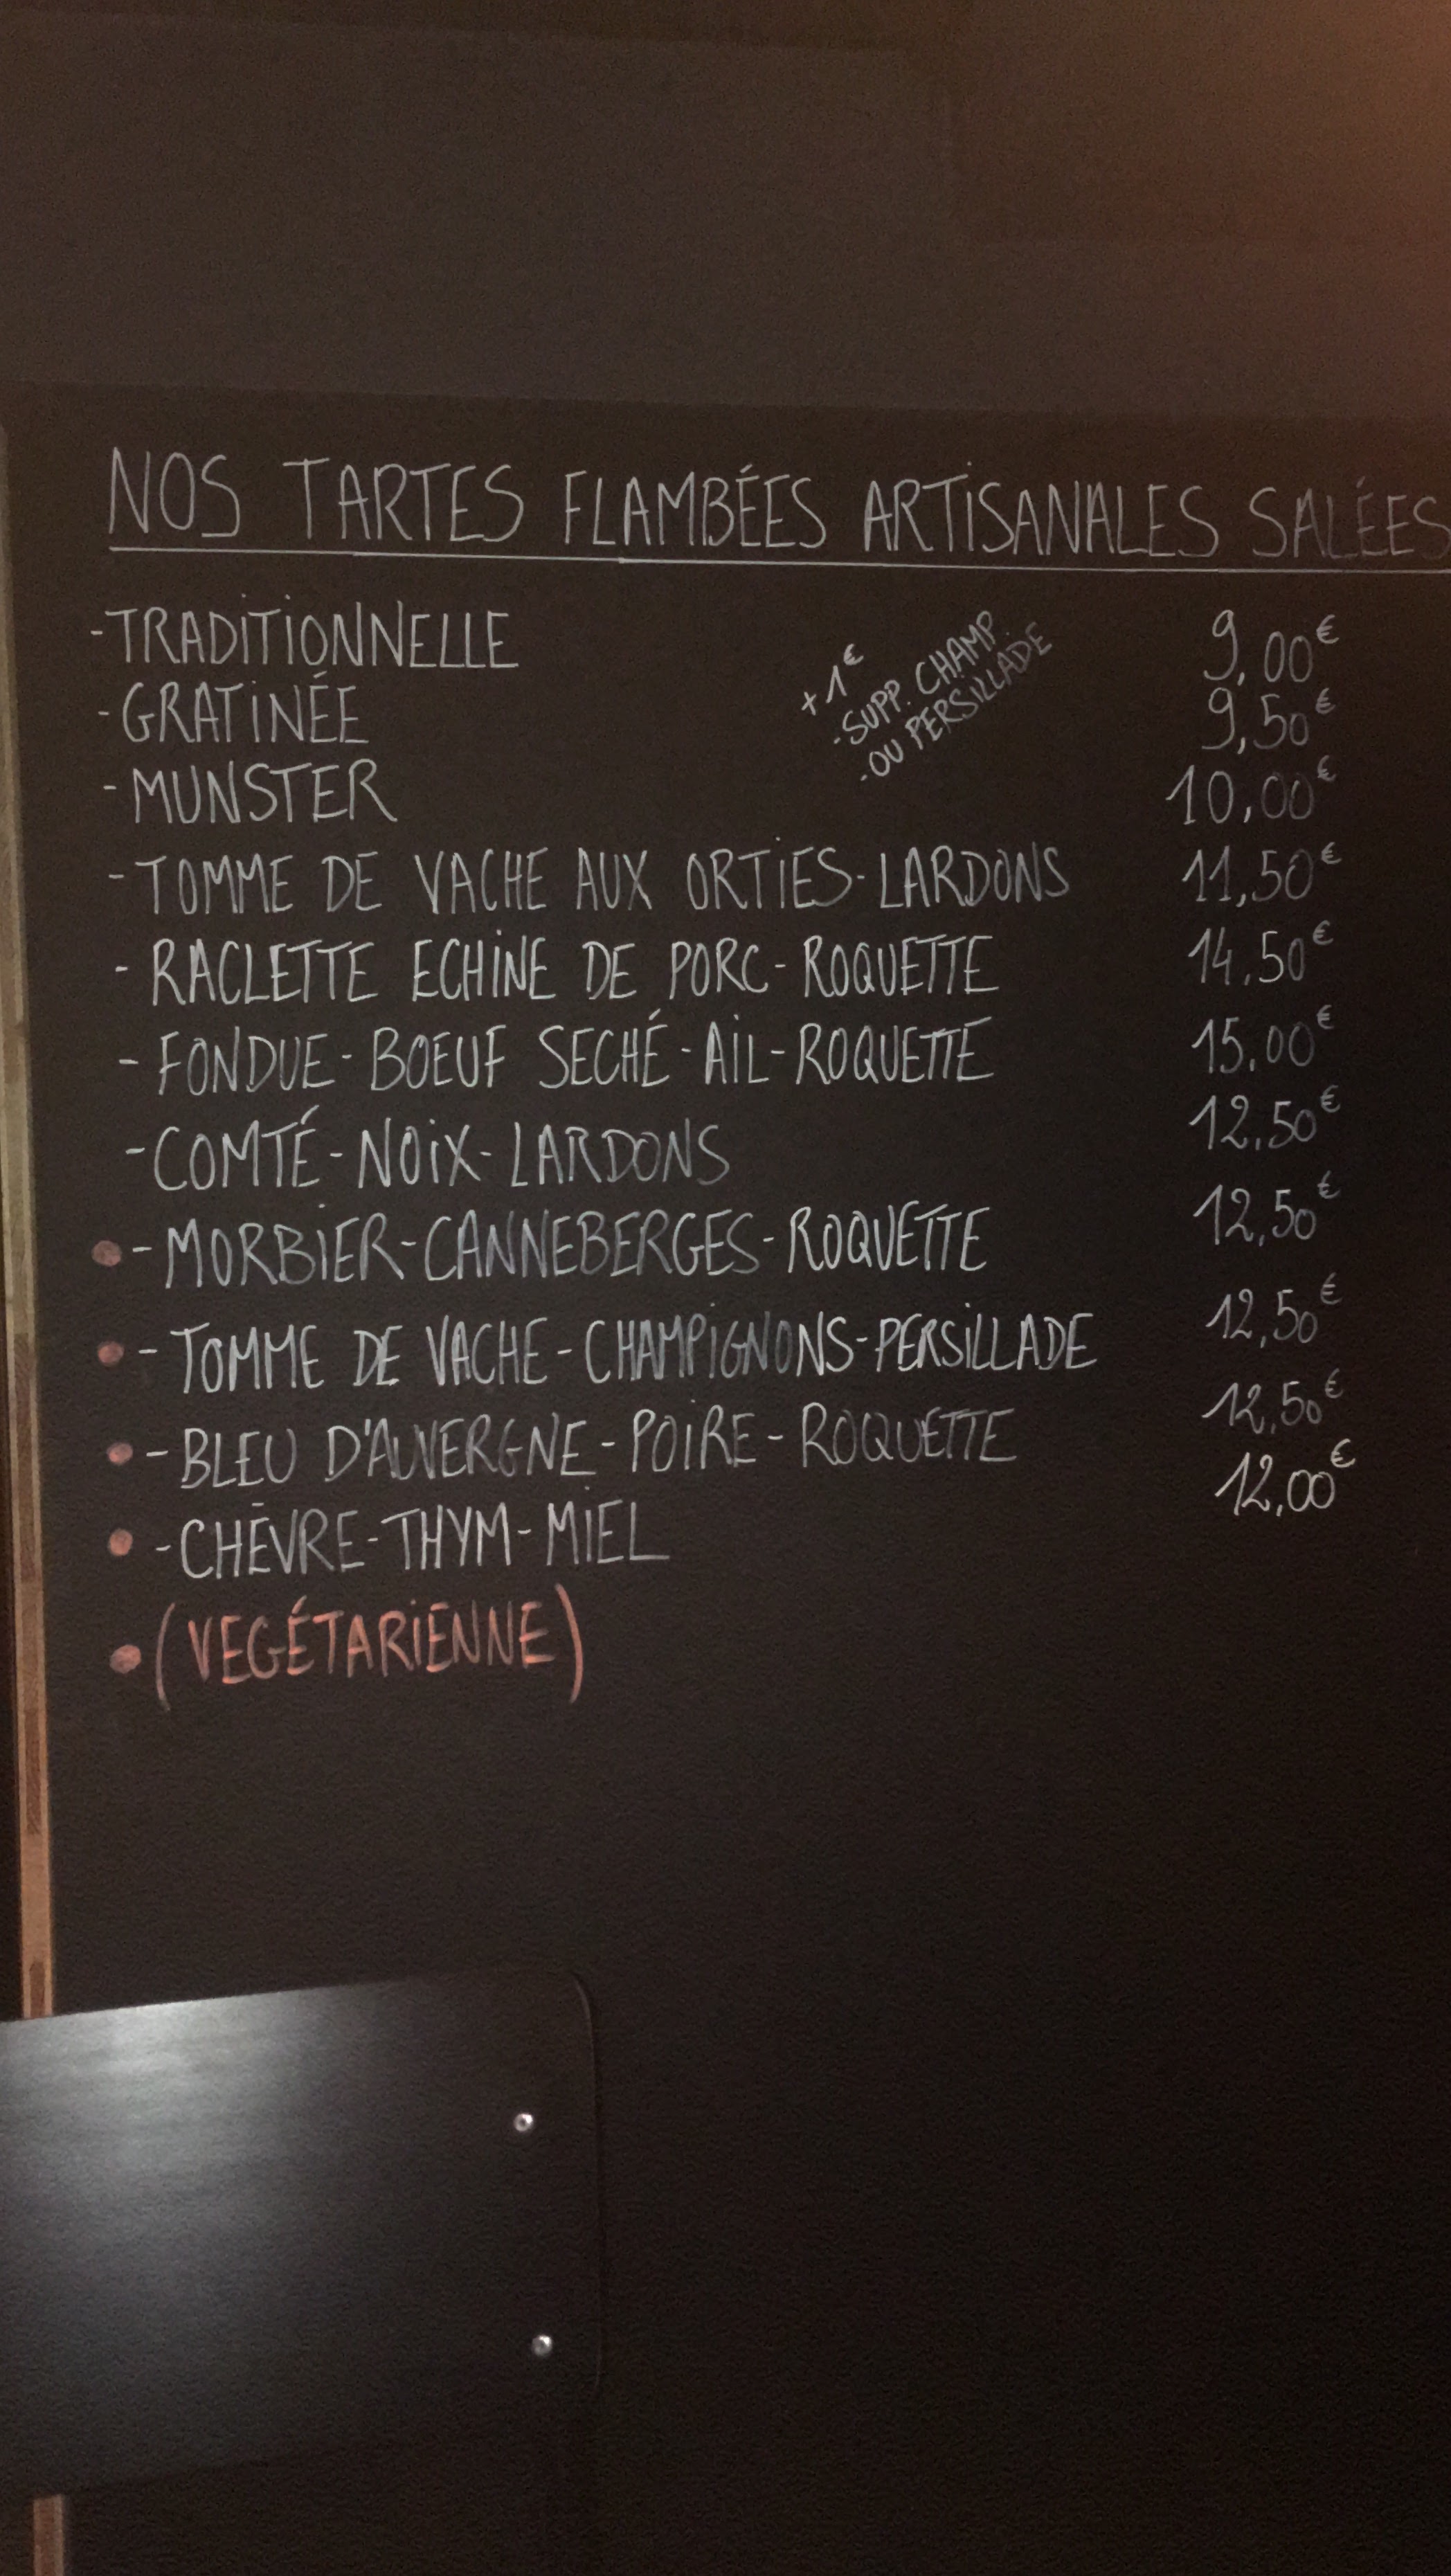 NOS TARTES FLAMBÉES ARTISANALES SALÉES
-TRADITIONNELLE 9,00€
-GRATINÉE 9,50€
-MUNSTER 10,00€
+1€
-SUPP. CHAMP.
-OU PERSILLADE
-TOMME DE VACHE AUX ORTIES-LARDONS 11,50€
-RACLETTE ECHINE DE PORC-ROQUETTE 14,50€
-FONDUE-BOEUF SECHÉ-AIL-ROQUETTE 15,00€
-COMTÉ-NOIX-LARDONS 12,50€
•-MORBIER-CANNEBERGES-ROQUETTE 12,50€
•-TOMME DE VACHE-CHAMPIGNONS-PERSILLADE 12,50€
•-BLEU D'AUVERGNE-POIRE-ROQUETTE 12,50€
•-CHÈVRE-THYM-MIEL 12,00€
•(VEGÉTARIENNE)